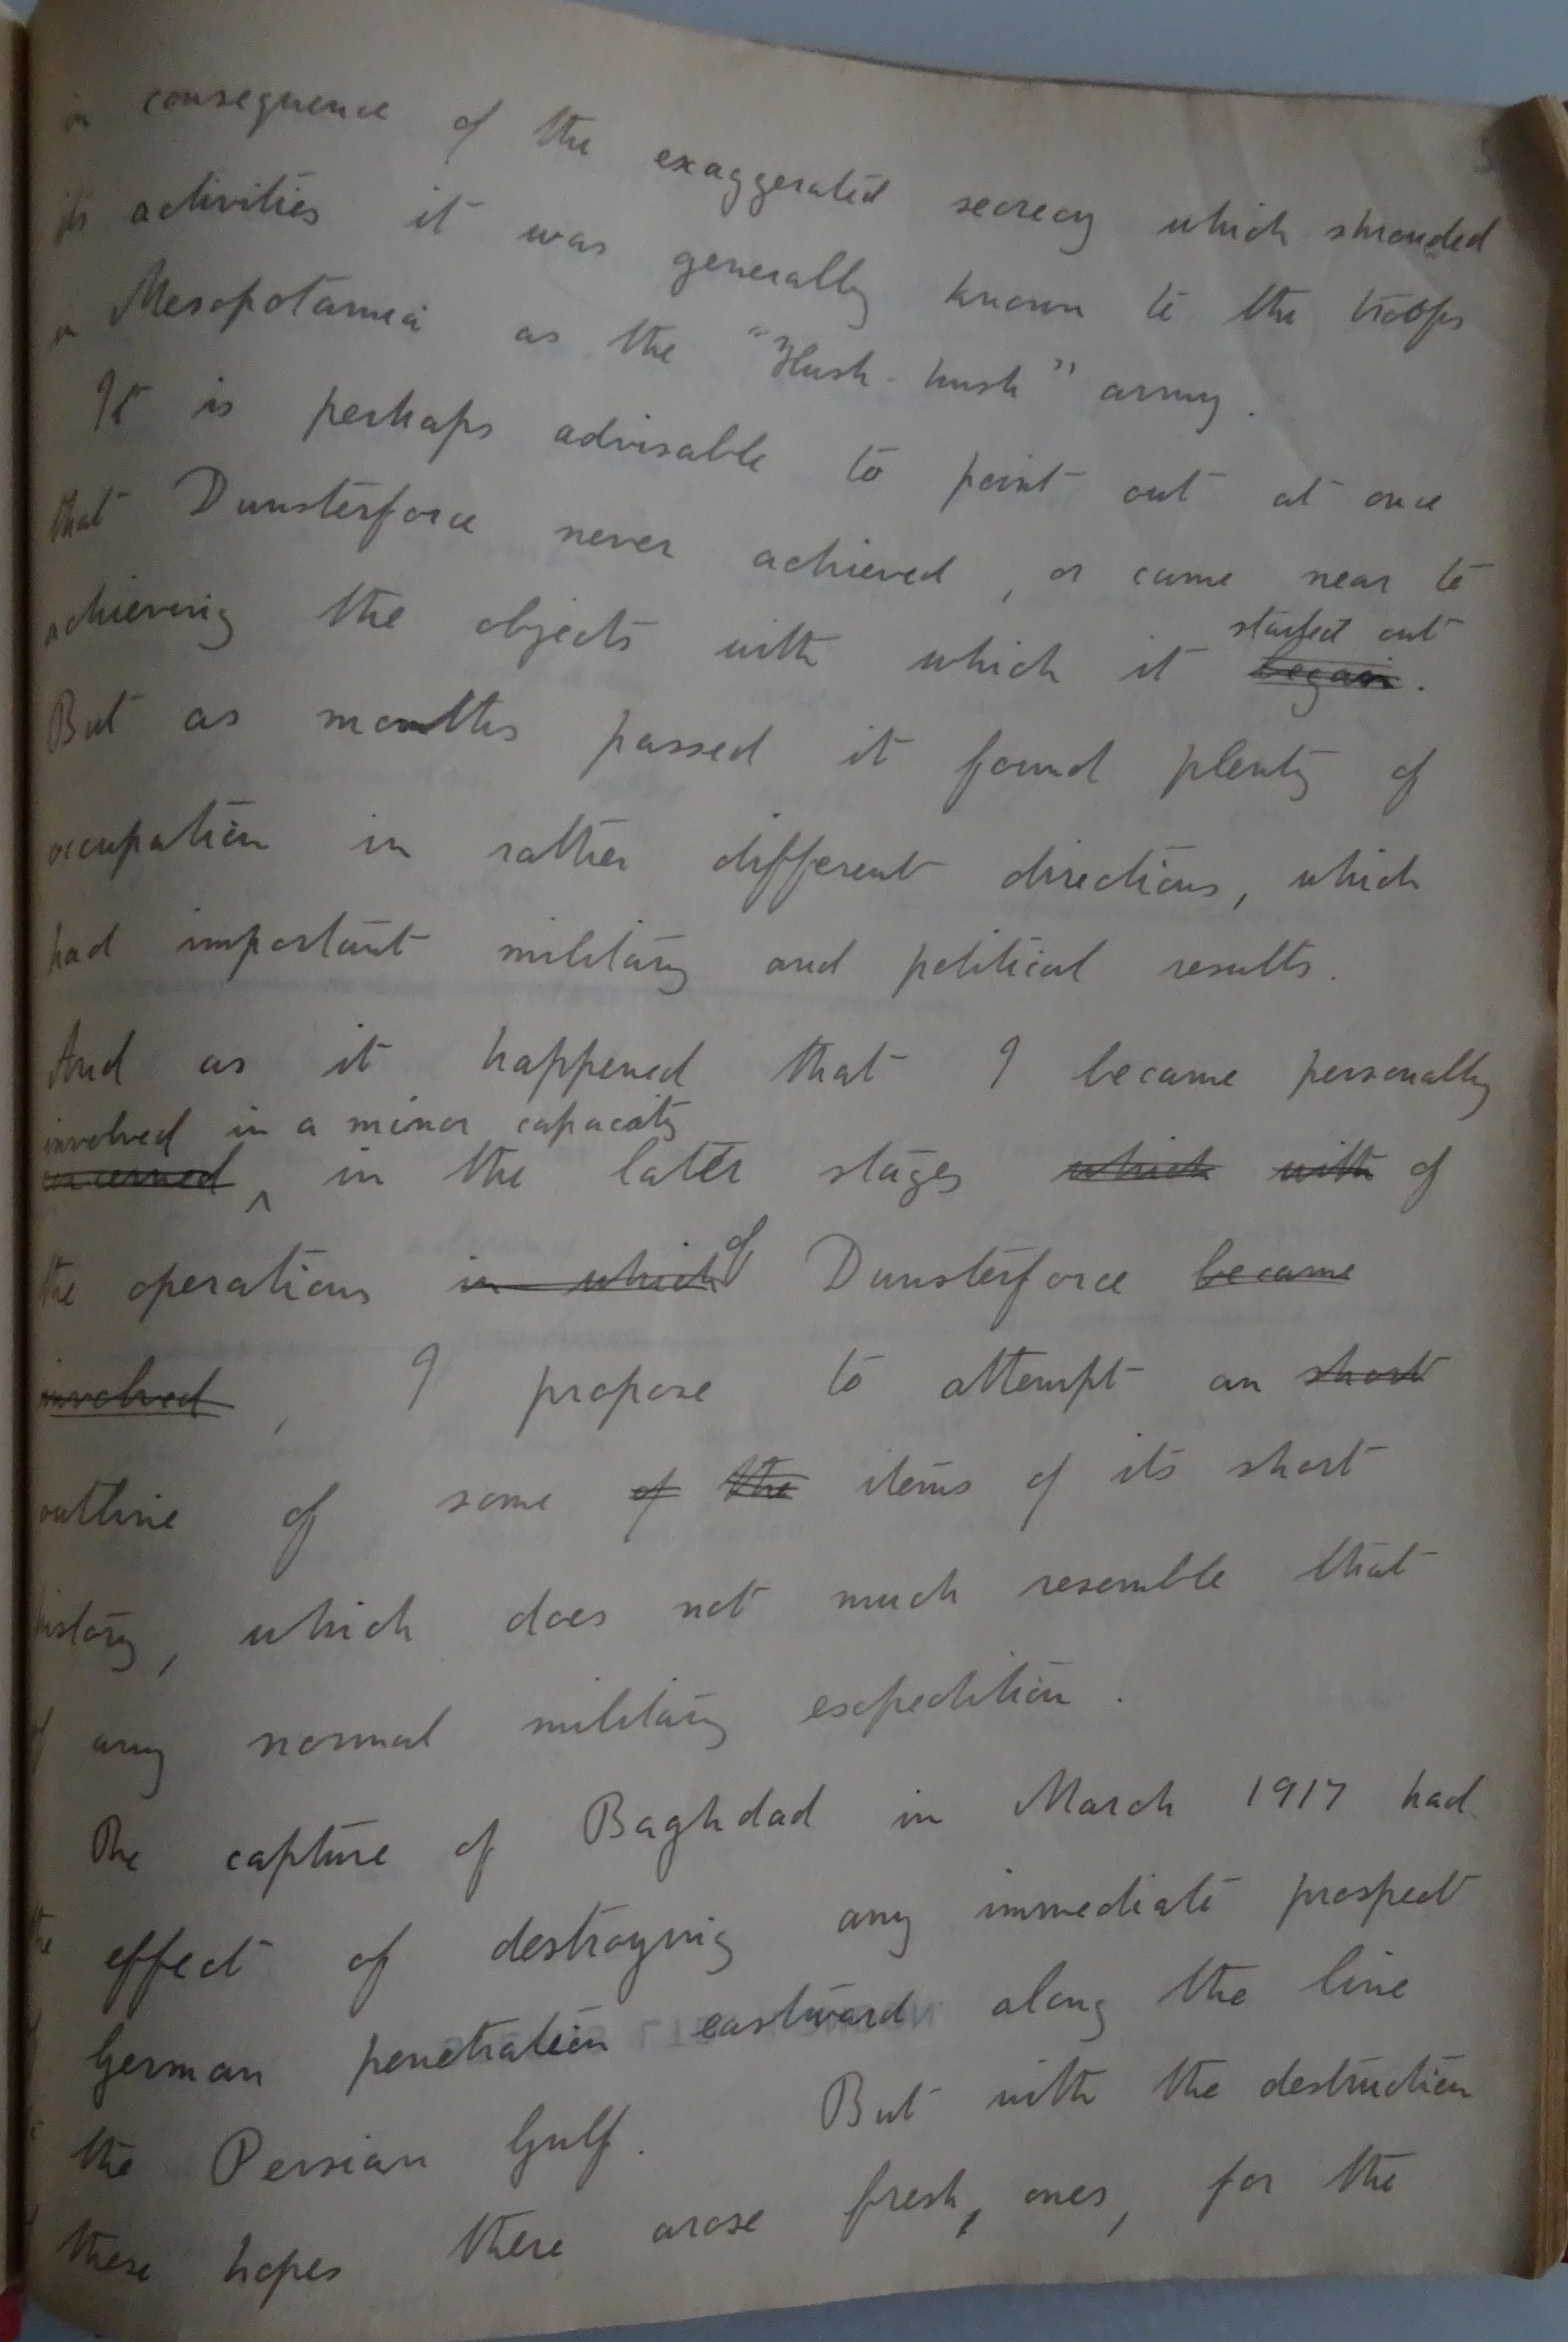 in consequence of the exaggerated secrecy which shrouded
its activities it was generally known to the troops
in Mesopotamia as the "Hush-hush" army.
It is perhaps advisable to point out at once
that Dunsterforce never achieved, or came near to
started out
achieving the objects with which it began.
But as months passed it found plenty of
occupation in rather different directions, which
had important military and political results.
And as it happened that I became personally
involved in a minor capacity
concerned ^ in the later stages which with of
the operations in which of Dunsterforce became
involved, I propose to attempt an short
outline of some of the items of its short
history, which does not much resemble that
of any normal military expedition.
The capture of Baghdad in March 1917 had
the effect of destroying any immediate prospect
German penetration eastward along the line
the Persian Gulf. But with the destruction
these hopes there arose fresh, ones, for the